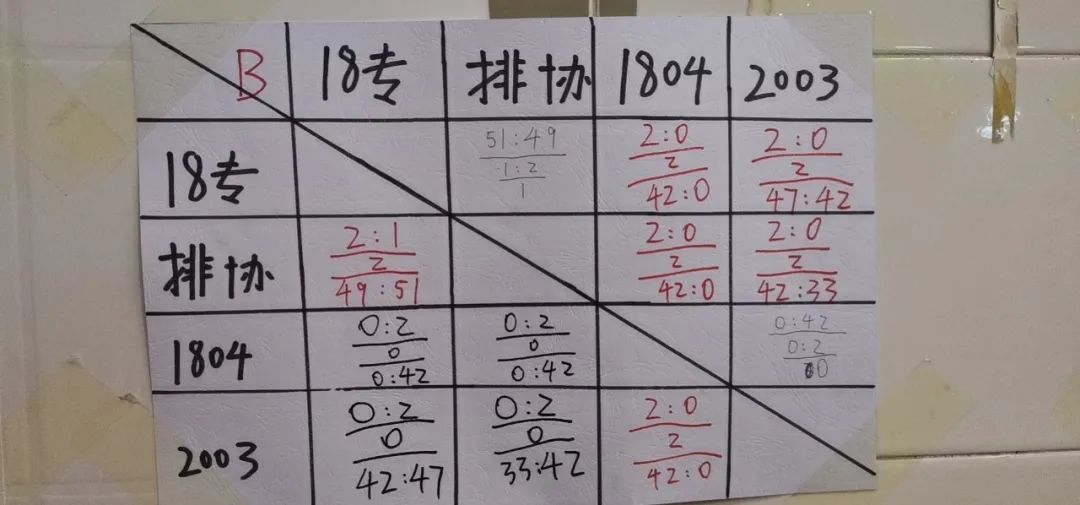 B 18专 排协 1804 2003
18专
51:49
1:2
1
2:0
2
42:0
2:0
2
47:42
排协
2:1
2
49:51
2:0
2
42:0
2:0
2
42:33
1804
0:2
0
0:42
0:2
0
0:42
0:42
0:2
0
2003
0:2
0
42:47
0:2
0
33:42
2:0
2
42:0